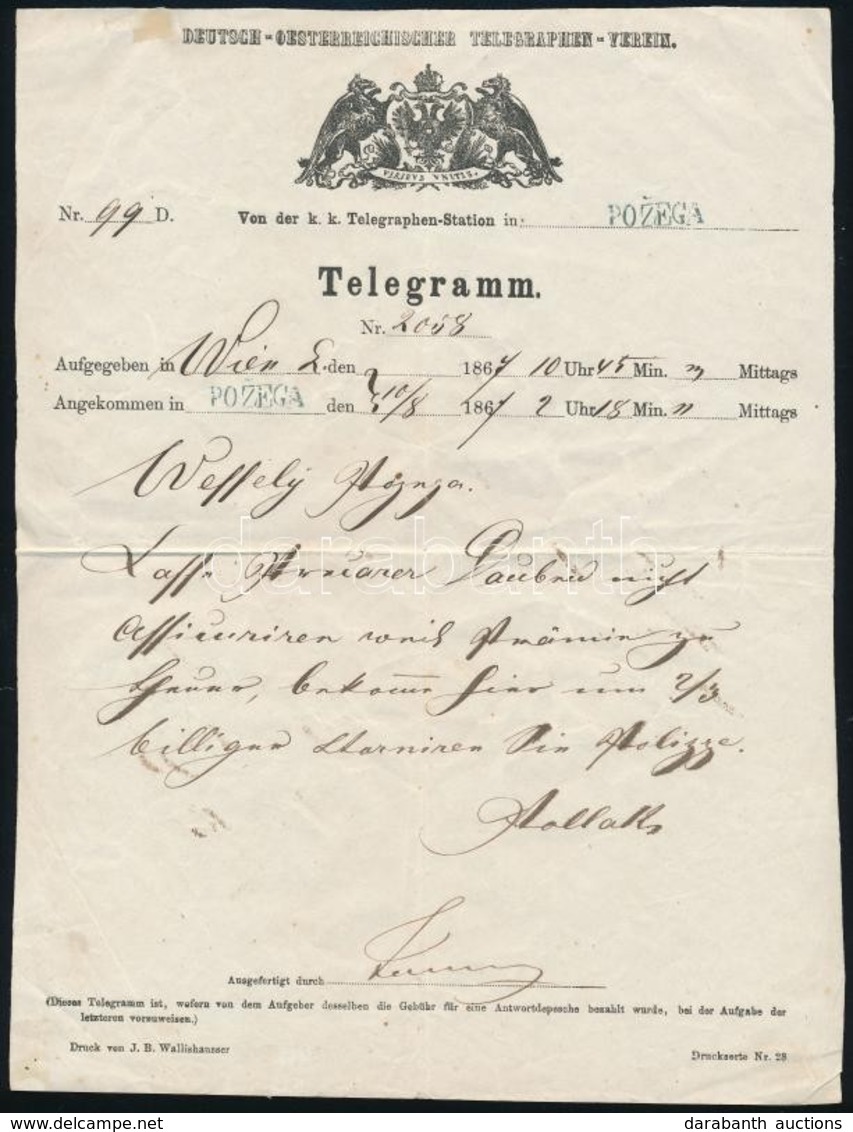 DEUTSCH-OESTERREICHISCHER TELEGRAPHEN-VEREIN.
VIRIBVS VNITIS.
Nr. 99 D. Von der k. k. Telegraphen-Station in: POŽEGA
Telegramm.
Nr. 2058
Aufgegeben in Wien den 1867 10 Uhr 45 Min. Mittags
Angekommen in POŽEGA den 10/8 1867 2 Uhr 18 Min. n Mittags
Wessely Pozega.
Lasse Dauben nicht
assicuriren weil Prämie zu
theuer, bekomme hier um 2/3
billiger storniren Sie Polizze.
Pollak
darabanth
Ausgefertigt durch
(Dieses Telegramm ist, wofern von dem Aufgeber desselben die Gebühr für eine Antwortdepesche bezahlt wurde, bei der Aufgabe der
letzteren vorzuweisen.)
Druck von J. B. Wallishausser Drucksorte Nr. 28
darabanth auctions